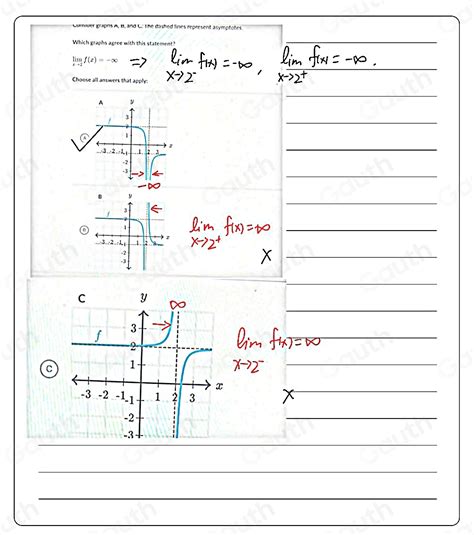 Consider graphs A, B, and C. The dashed lines represent asymptotes.
Which graphs agree with this statement?
lim x→2 f(x) = -∞ => lim x→2⁻ f(x) = -∞, lim x→2⁺ f(x) = -∞.
Choose all answers that apply:
A
y
3
f
2
1
A
x
-3 -2 -1 1 2 3
-2
-3
-∞
B
y
3
f
2
1
B
x
-3 -2 -1 1 2
-2
-3
lim x→2⁺ f(x) = ∞
X
C
y
∞
3
f
2
1
C
x
-3 -2 -1 1 2 3
-2
-3
lim x→2⁻ f(x) = ∞
X
Gauth